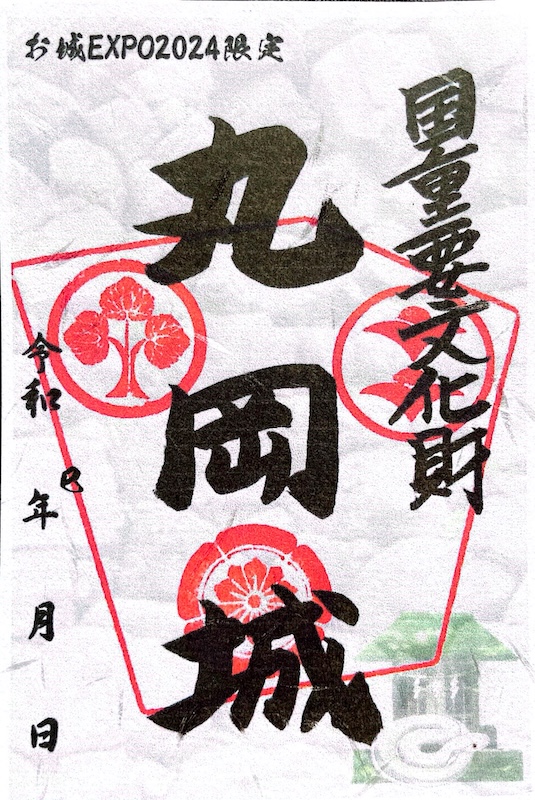 お城EXPO2024限定
国重要文化財
丸岡城
令和 巳年 月 日